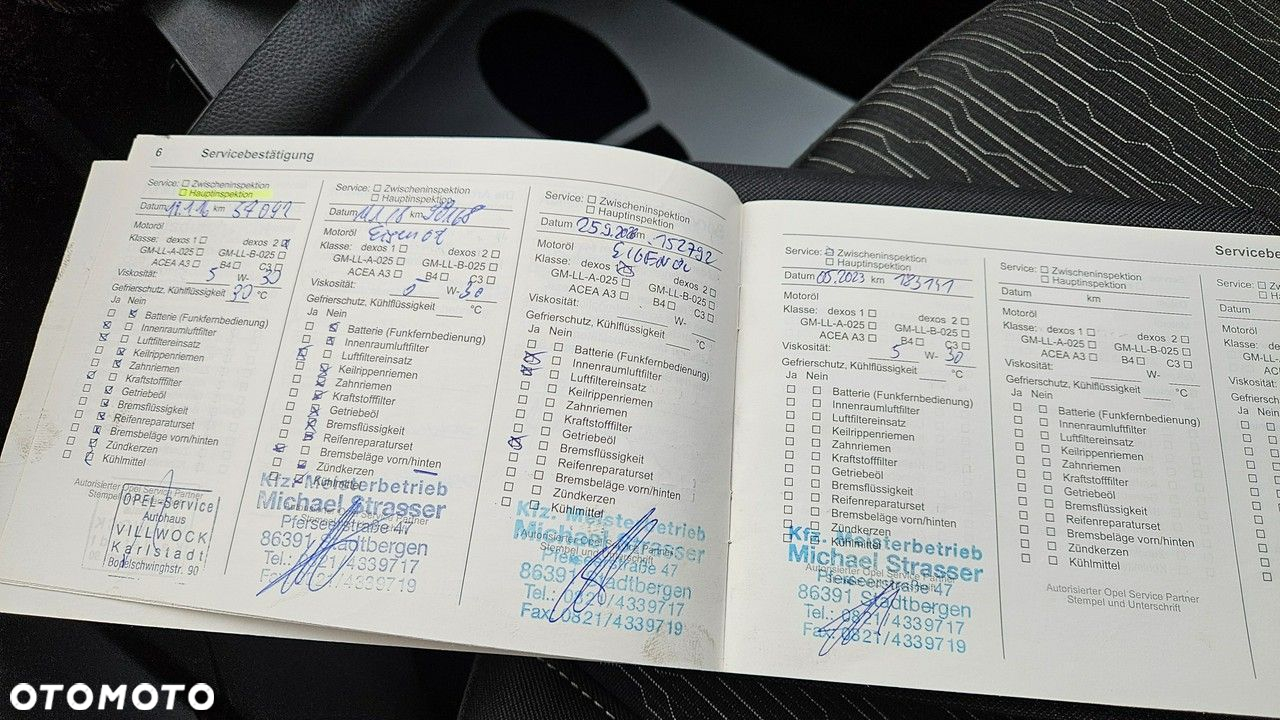 6 Servicebestätigung
Service: Zwischeninspektion
Hauptinspektion
Datum 19.1.16 km 37 092
Motoröl
Klasse: dexos 1 dexos 2
GM-LL-A-025 GM-LL-B-025
ACEA A3 B4 C3
Viskosität: 5 W- 30
Gefrierschutz, Kühlflüssigkeit 30 °C
Ja Nein
Batterie (Funkfernbedienung)
Innenraumluftfilter
Luftfiltereinsatz
Keilrippenriemen
Zahnriemen
Kraftstofffilter
Getriebeöl
Bremsflüssigkeit
Reifenreparaturset
Bremsbeläge vorn/hinten
Zündkerzen
Kühlmittel
Autorisierter Opel Service Partner
Stempel
OPEL-Service
Autohaus
VILLWOCK
Karlstadt
Bodelschwinghstr. 90
Service: Zwischeninspektion
Hauptinspektion
Datum km
Motoröl
Klasse: dexos 1 dexos 2
GM-LL-A-025 GM-LL-B-025
ACEA A3 B4 C3
Viskosität: 0 W- 30
Gefrierschutz, Kühlflüssigkeit °C
Ja Nein
Batterie (Funkfernbedienung)
Innenraumluftfilter
Luftfiltereinsatz
Keilrippenriemen
Zahnriemen
Kraftstofffilter
Getriebeöl
Bremsflüssigkeit
Reifenreparaturset
Bremsbeläge vorn/hinten
Zündkerzen
Kühlmittel
Kfz. Meisterbetrieb
Michael Strasser
Pferseerstraße 47
86391 Stadtbergen
Tel.: 0821/4339717
Fax: 0821/4339719
Service: Zwischeninspektion
Hauptinspektion
Datum 25.9. km 152792
Motoröl EIGENÖL
Klasse: dexos 1 dexos 2
GM-LL-A-025 GM-LL-B-025
ACEA A3 B4 C3
Viskosität: W-
Gefrierschutz, Kühlflüssigkeit °C
Ja Nein
Batterie (Funkfernbedienung)
Innenraumluftfilter
Luftfiltereinsatz
Keilrippenriemen
Zahnriemen
Kraftstofffilter
Getriebeöl
Bremsflüssigkeit
Reifenreparaturset
Bremsbeläge vorn/hinten
Zündkerzen
Kühlmittel
Kfz. Meisterbetrieb
Michael Strasser
Pferseerstraße 47
86391 Stadtbergen
Tel.: 0821/4339717
Fax: 0821/4339719
Servicebe
Service: Zwischeninspektion
Hauptinspektion
Datum 05.2023 km 183151
Motoröl
Klasse: dexos 1 dexos 2
GM-LL-A-025 GM-LL-B-025
ACEA A3 B4 C3
Viskosität: 5 W- 30
Gefrierschutz, Kühlflüssigkeit °C
Ja Nein
Batterie (Funkfernbedienung)
Innenraumluftfilter
Luftfiltereinsatz
Keilrippenriemen
Zahnriemen
Kraftstofffilter
Getriebeöl
Bremsflüssigkeit
Reifenreparaturset
Bremsbeläge vorn/hinten
Zündkerzen
Kühlmittel
Kfz. Meisterbetrieb
Michael Strasser
Autorisierter Opel Service Partner
Pferseerstraße 47
86391 Stadtbergen
Tel.: 0821/4339717
Fax: 0821/4339719
Service: Zwischeninspektion
Hauptinspektion
Datum km
Motoröl
Klasse: dexos 1 dexos 2
GM-LL-A-025 GM-LL-B-025
ACEA A3 B4 C3
Viskosität: W-
Gefrierschutz, Kühlflüssigkeit °C
Ja Nein
Batterie (Funkfernbedienung)
Innenraumluftfilter
Luftfiltereinsatz
Keilrippenriemen
Zahnriemen
Kraftstofffilter
Getriebeöl
Bremsflüssigkeit
Reifenreparaturset
Bremsbeläge vorn/hinten
Zündkerzen
Kühlmittel
Autorisierter Opel Service Partner
Stempel und Unterschrift
Service:
Datum
Motoröl
Klasse: de
GM-LL-A
ACE
Viskosität
Gefriersch
Ja Nein
OTOMOTO